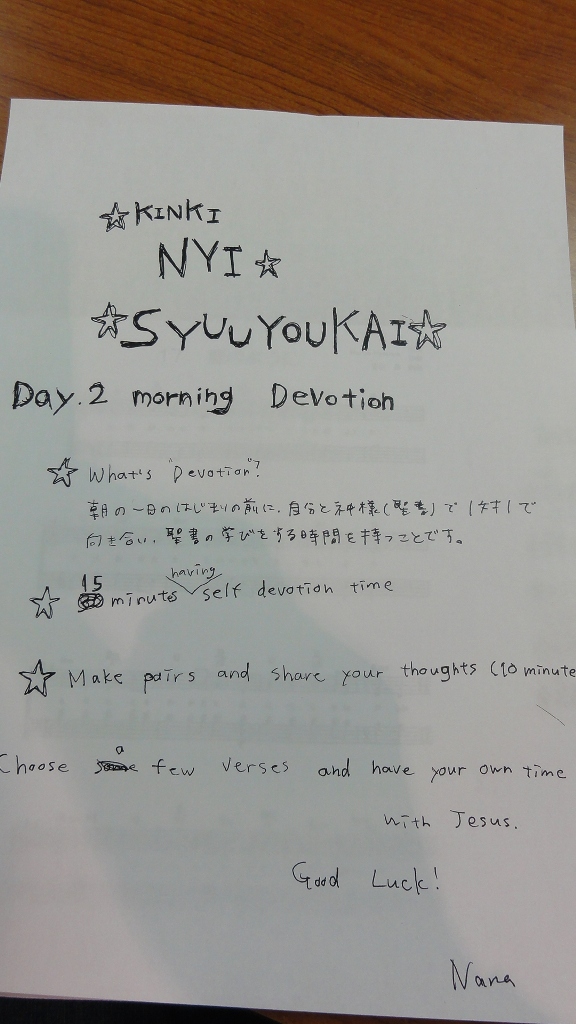 KINKI
NYI
SYUUYOUKAI
Day.2 morning Devotion
What's "Devotion"?
朝の一日のはじまりの前に、自分と神様(聖書)で1対1で
向き合い、聖書の学びをする時間を持つことです。
having
15 minutes self devotion time
Make pairs and share your thoughts (10 minute
a
Choose few verses and have your own time
with Jesus.
Good Luck!
Nana